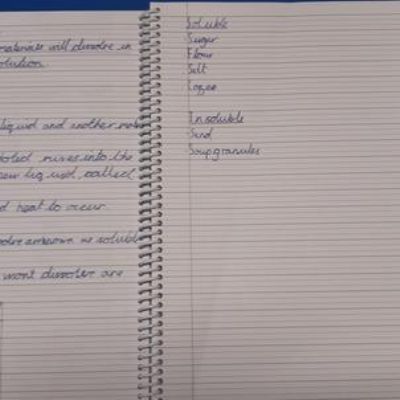 materials will dissolve in
solution.
liquid and another
mixes into the
new liquid, called
heat to occur.
are known as soluble
wont dissolve are
Soluble
Sugar
Flour
Salt
Insoluble
Sand
Soup granules